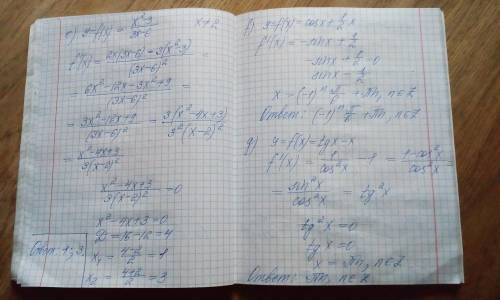 e) y=f(x) = (x²-3)/(3x-6)   x≠2
f'(x) = (2x(3x-6) - 3(x²-3))/(3x-6)² =
= (6x²-12x-3x²+9)/(3x-6)² =
= (3x²-12x+9)/(3x-6)² = 3(x²-4x+3)/(3²(x-2)²) =
= (x²-4x+3)/(3(x-2)²)
(x²-4x+3)/(3(x-2)²) = 0
x²-4x+3=0
D=16-12=4
x₁ = (4-2)/2 = 1
x₂ = (4+2)/2 = 3
Ответ: 1; 3
y=f(x)=cosx+½x
f'(x)=-sinx+½
-sinx+½=0
sinx=½
x=(-1)ⁿ π/6 +πn, n∈Z
Ответ: (-1)ⁿ π/6 +πn, n∈Z
g) y=f(x)=tgx-x
f'(x)= 1/cos²x -1 = (1-cos²x)/cos²x =
= sin²x/cos²x = tg²x
tg²x=0
tgx=0
x=πn, n∈Z
Ответ: πn, n∈Z